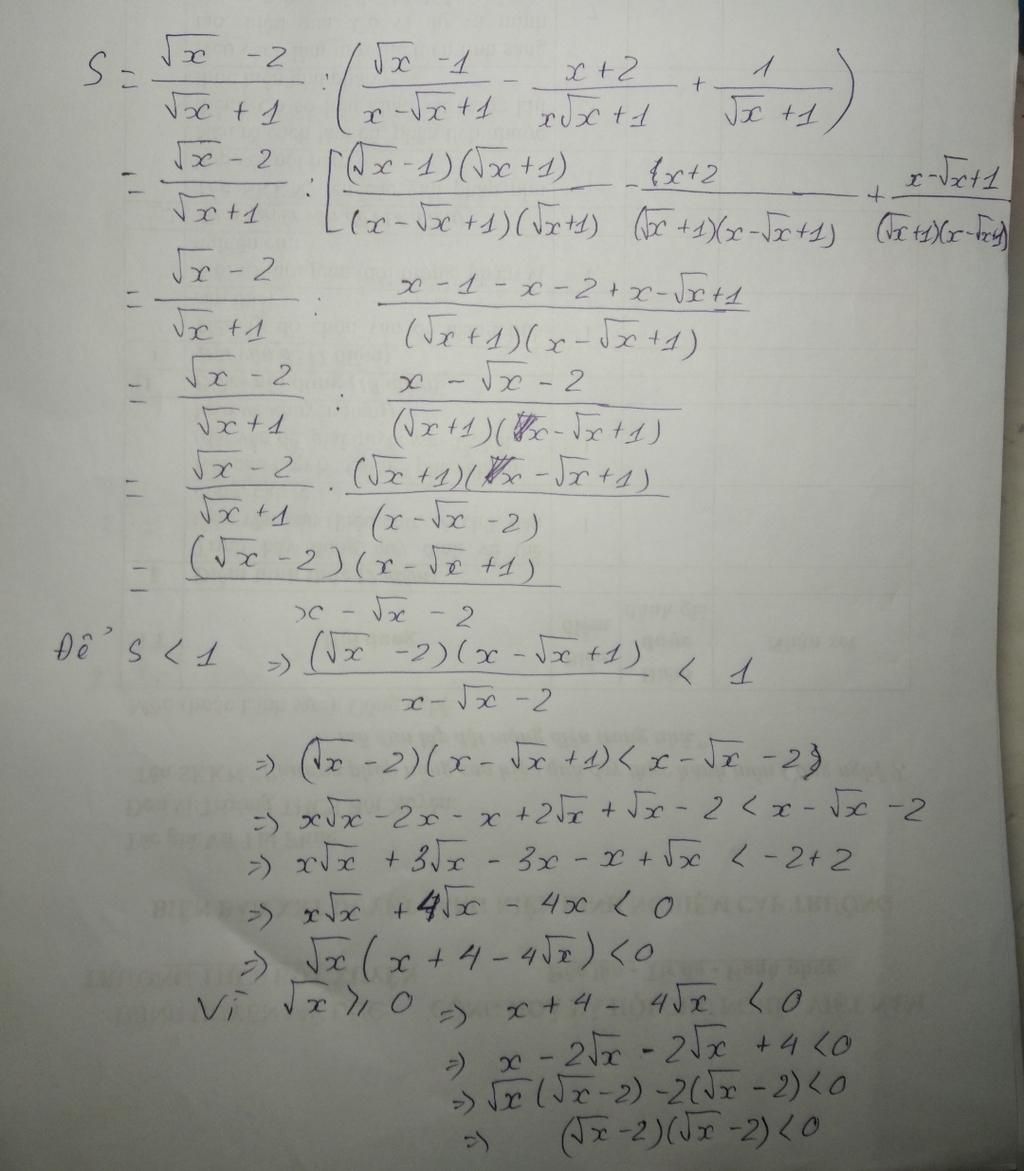 S = (√x - 2)/(√x + 1) : ((√x - 1)/(x - √x + 1) - (x + 2)/(x√x + 1) + 1/(√x + 1))
= (√x - 2)/(√x + 1) : [(√x - 1)(√x + 1)/(x - √x + 1)(√x + 1) - (x + 2)/(√x + 1)(x - √x + 1) + (x - √x + 1)/(√x + 1)(x - √x + 1)
= (√x - 2)/(√x + 1) : (x - 1 - x - 2 + x - √x + 1)/(√x + 1)(x - √x + 1)
= (√x - 2)/(√x + 1) : (x - √x - 2)/(√x + 1)(x - √x + 1)
= (√x - 2)/(√x + 1) . (√x + 1)(x - √x + 1)/(x - √x - 2)
= (√x - 2)(x - √x + 1)/(x - √x - 2)
Để S < 1 => (√x - 2)(x - √x + 1)/(x - √x - 2) < 1
=> (√x - 2)(x - √x + 1) < x - √x - 2
=> x√x - 2x - x + 2√x + √x - 2 < x - √x - 2
=> x√x + 3√x - 3x - x + √x < -2 + 2
=> x√x + 4√x - 4x < 0
=> √x (x + 4 - 4√x) < 0
Vì √x ≥ 0 => x + 4 - 4√x < 0
=> x - 2√x - 2√x + 4 < 0
=> √x (√x - 2) - 2(√x - 2) < 0
=> (√x - 2)(√x - 2) < 0